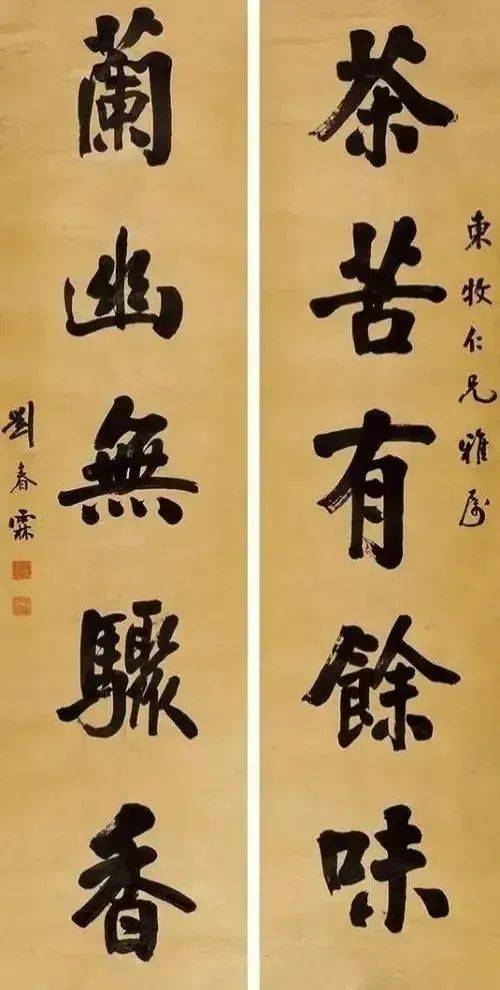 東牧仁兄雅属
茶苦有餘味
蘭幽無驟香
劉春霖